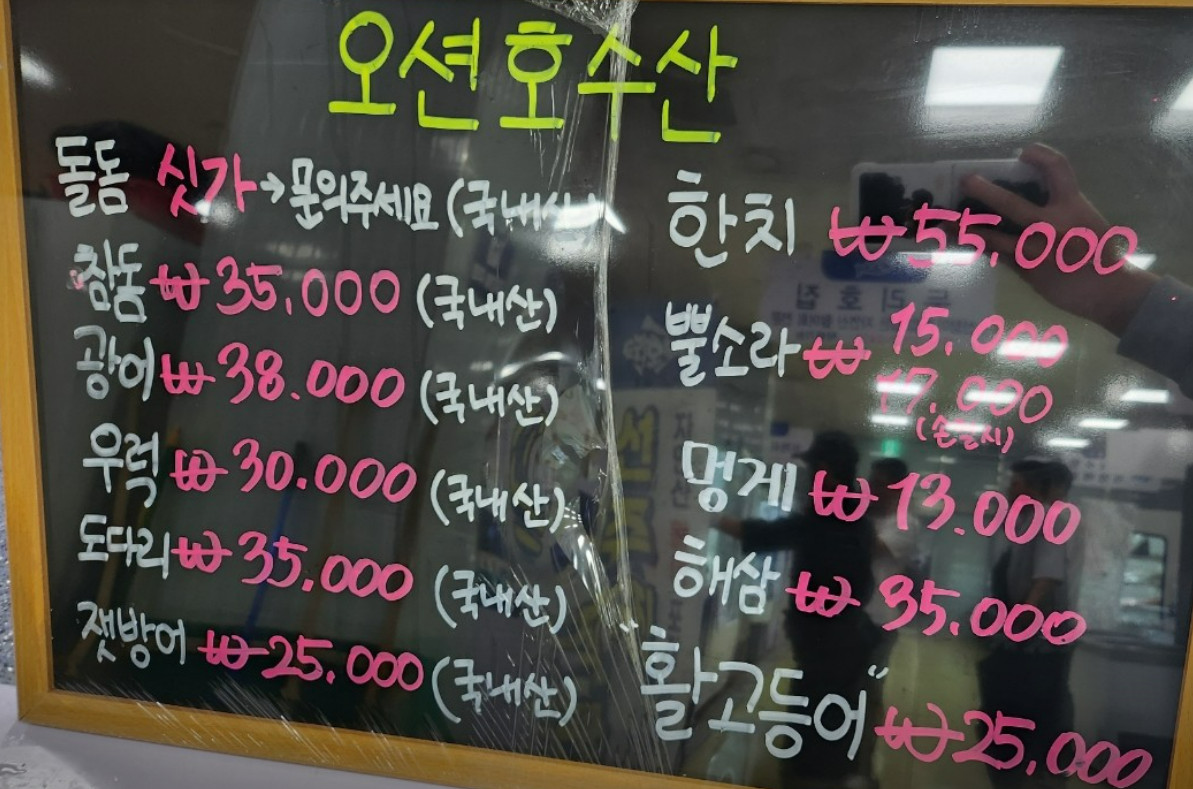 오션호수산
돌돔 싯가→문의주세요 (국내산)
참돔 ₩35,000 (국내산)
광어 ₩38.000 (국내산)
우럭 ₩30.000 (국내산)
도다리 ₩35,000 (국내산)
잿방어 ₩25,000 (국내산)
한치 ₩55,000
뿔소라 ₩15,000
17,000
(손질시)
멍게 ₩13.000
해삼 ₩35.000
"활고등어" ₩25,000